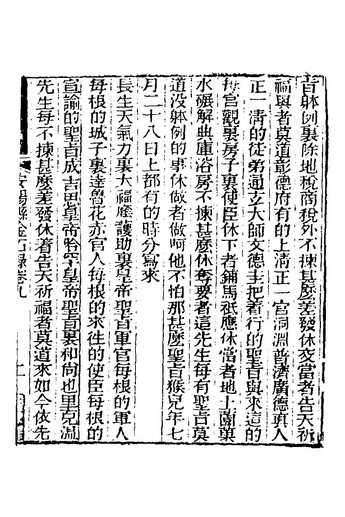 旨躰例裏除地稅商稅外不揀甚麽差發休交當者告天祈
福與者莫道彰德府有的上清正一宮洞淵普濟廣德真人
正一清的徒弟通玄大師文德 把着行的聖旨與來這的
每宮觀裏房子裏使臣休下者鋪馬祇應休當者地土園菓
水碾解典庫浴房不揀甚麽休奪要者這先生每有聖旨莫
道沒躰例的事休做者做呵他不怕那甚麽聖旨猴兒年七
月二十八日上都有的時分寫來
長生天氣力裏大福廕護助裏皇帝聖旨軍官每根的軍人
每根的城子裏達魯花赤官人每根的來往的使臣每根的
宣諭的聖旨成吉思皇帝 皇帝聖旨裏和尚也里克溫
先生每不揀甚麽差發休着告天祈福者莫道來如今依先
安陽縣金石錄卷九